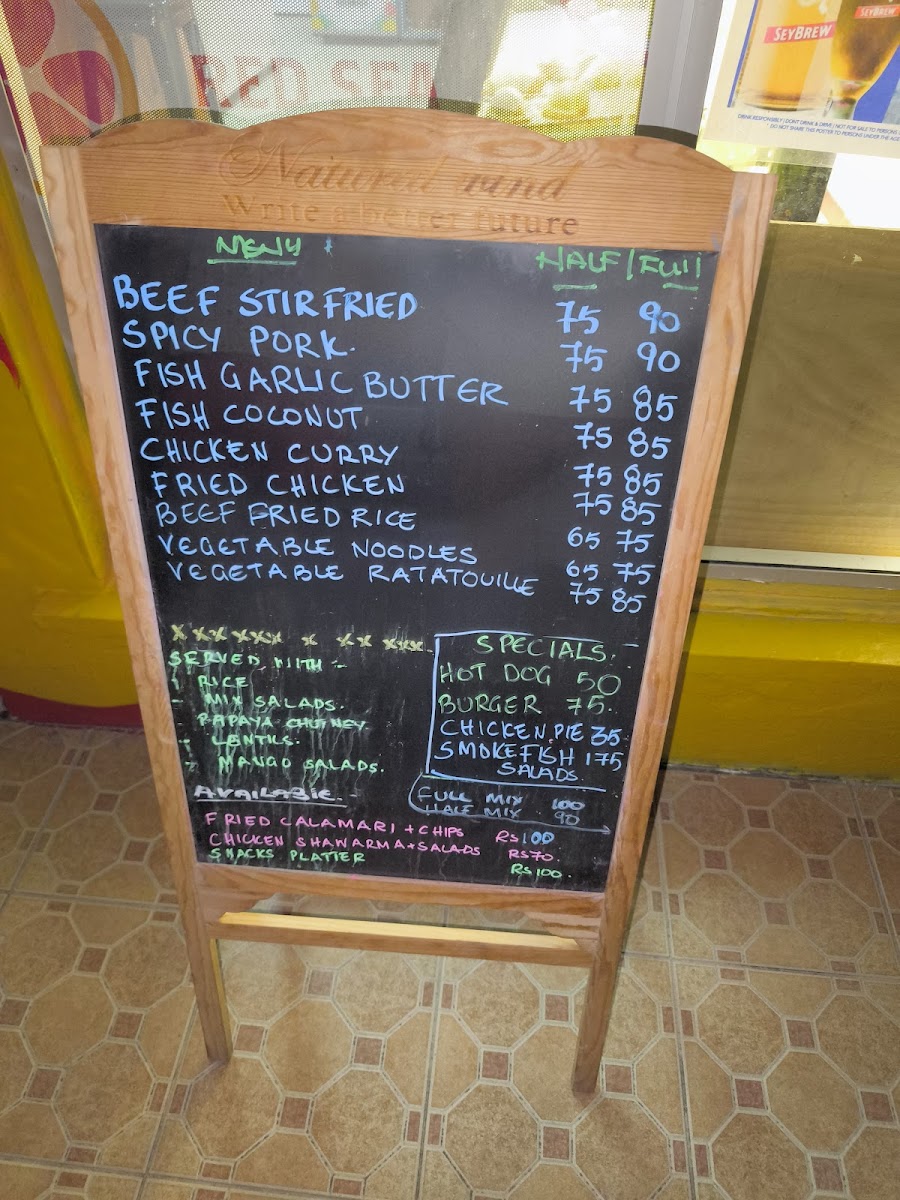 RED SEA
SEYBREW
SEYBREW
DRINK RESPONSIBLY | DON'T DRINK & DRIVE | NOT FOR SALE TO PERSONS
* DO NOT SHARE THIS POSTER TO PERSONS UNDER THE AGE
Natural wind
Write a better future
MENU HALF / FUll
BEEF STIR FRIED 75 90
SPICY PORK 75 90
FISH GARLIC BUTTER 75 85
FISH COCONUT 75 85
CHICKEN CURRY 75 85
FRIED CHICKEN 75 85
BEEF FRIED RICE 65 75
VEGETABLE NOODLES 65 75
VEGETABLE RATATOUILLE 75 85
x xx xxx x xx xxx
SERVED WITH :-
- RICE
- MIX SALADS.
- PAPAYA CHUTNEY
- LENTILS.
- MANGO SALADS.
SPECIALS.
HOT DOG 50
BURGER 75.
CHICKEN.PIE 35
SMOKEFISH 175
SALADS
FULL MIX 100
HALF MIX 90
AVAILABLE.-
FRIED CALAMARI + CHIPS Rs100
CHICKEN SHAWARMA + SALADS RS70.
SNACKS PLATTER Rs100.